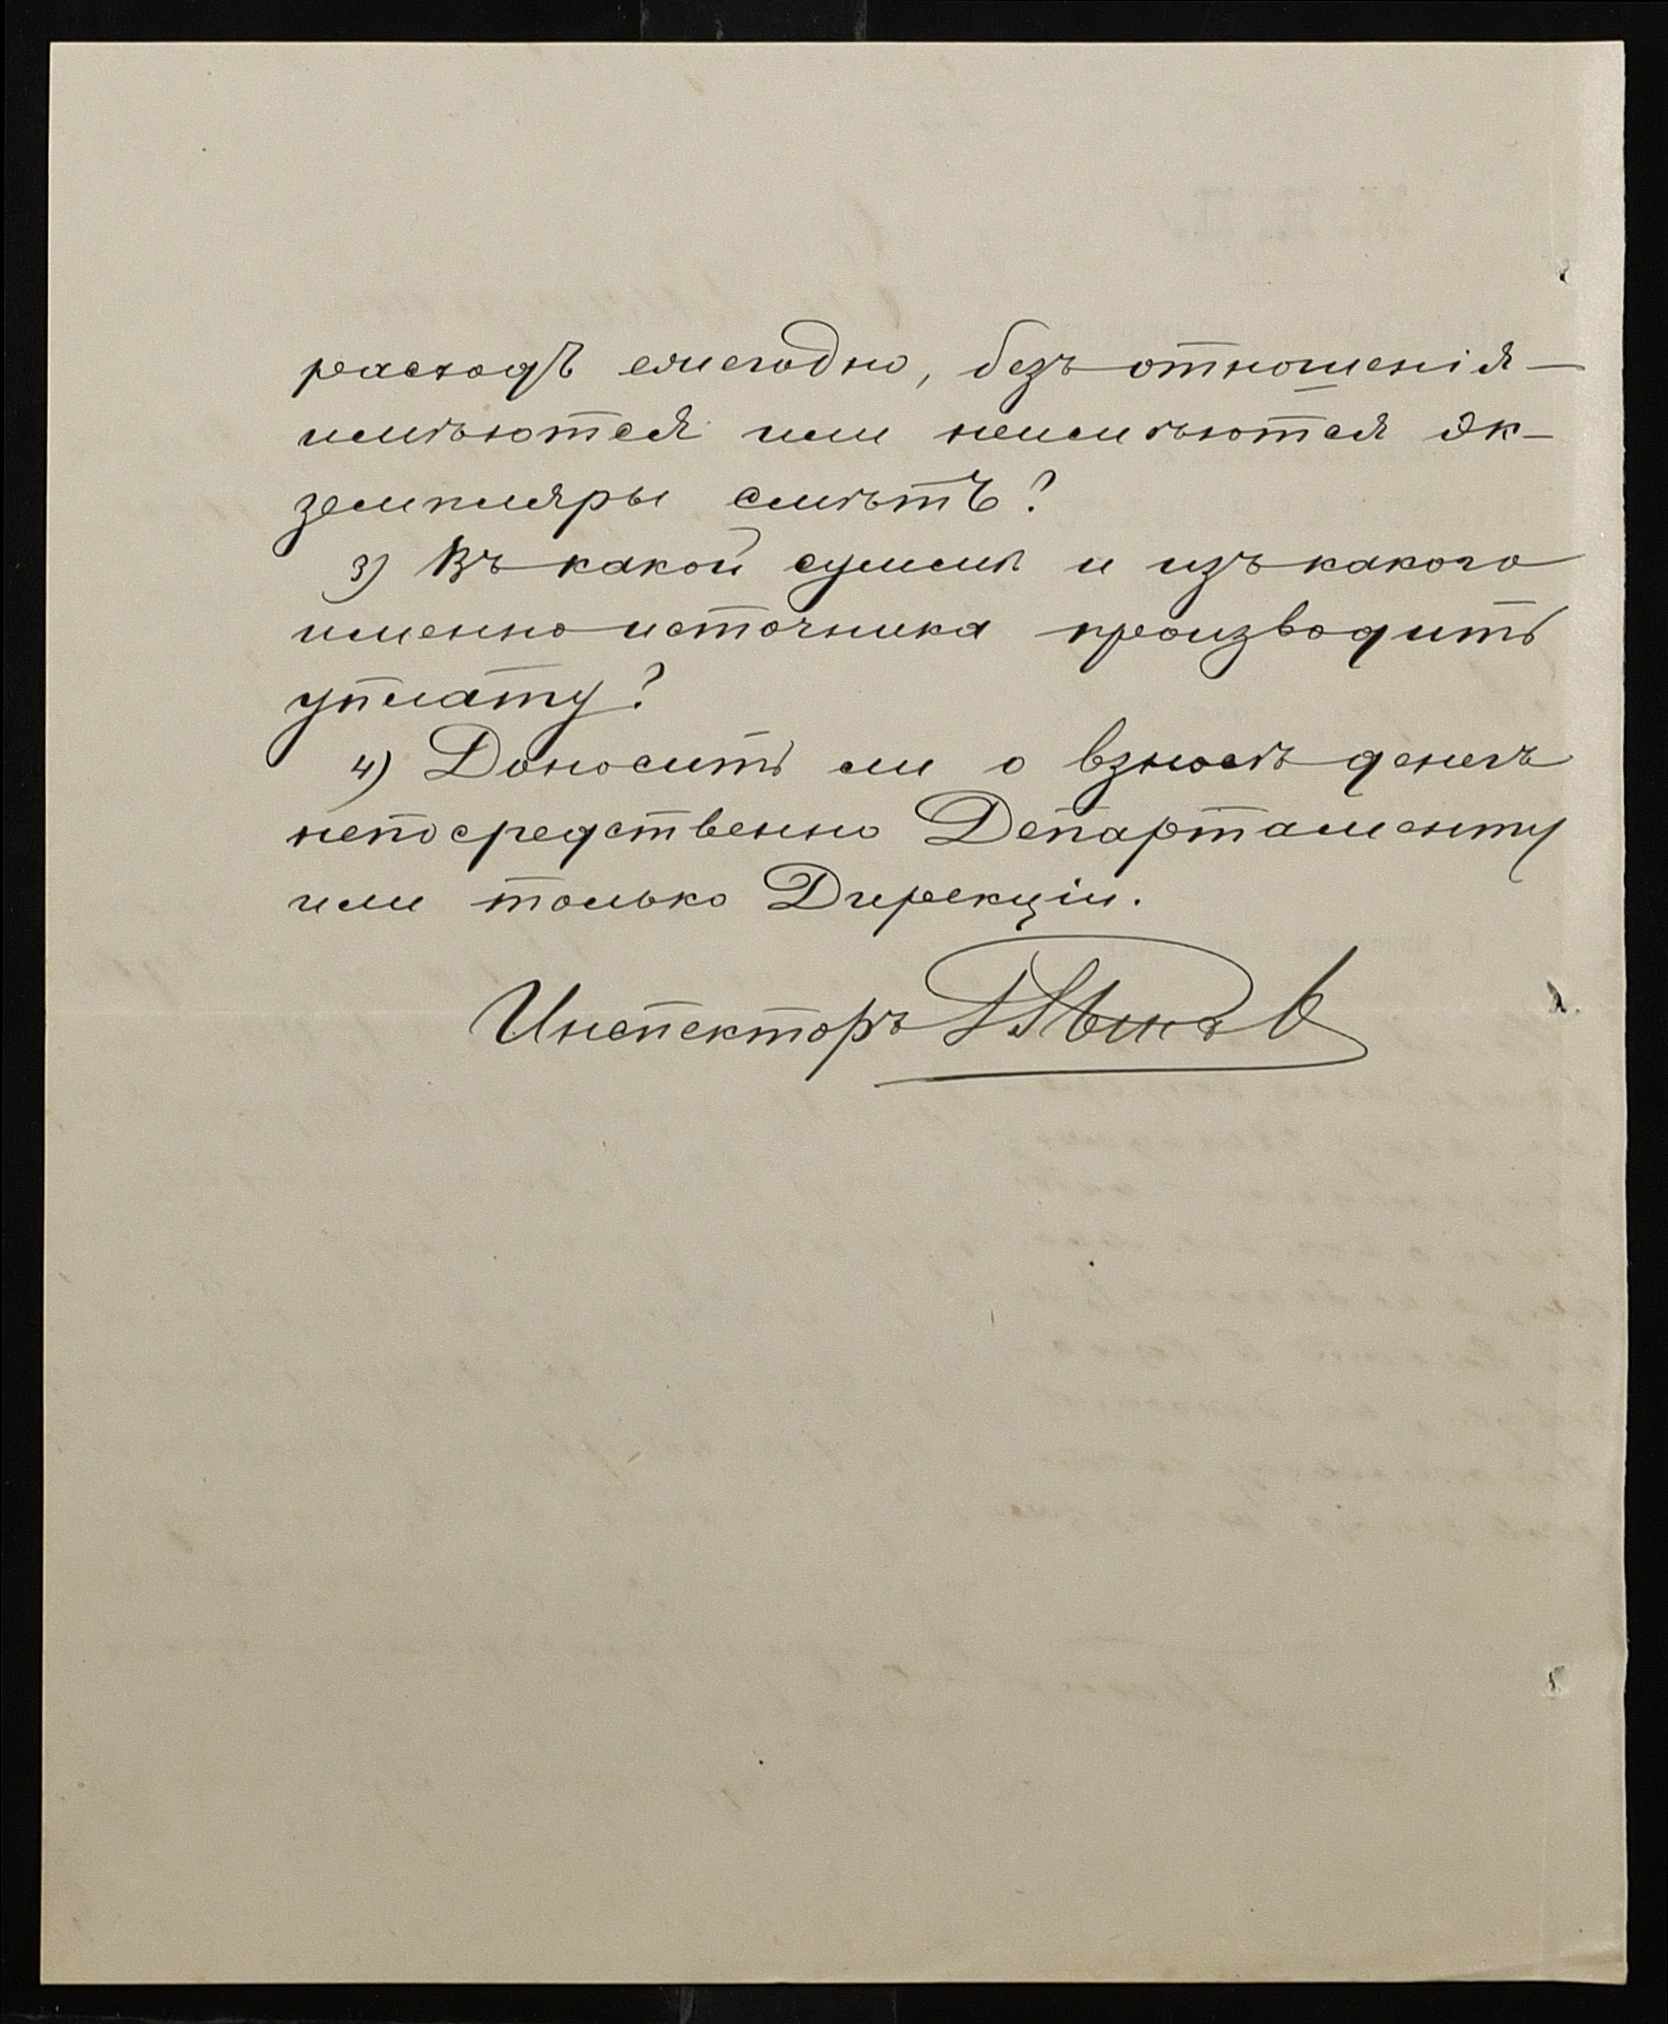 расходъ ежегодно, безъ отношенія —
имѣются или неимѣются эк-
земпляры смѣтъ?
3) Въ какой суммѣ и изъ какого
именно источника производить
уплату?
4) Доносить ли о взносѣ денегъ
непосредственно Департаменту
или только Дирекціи.
Инспекторъ